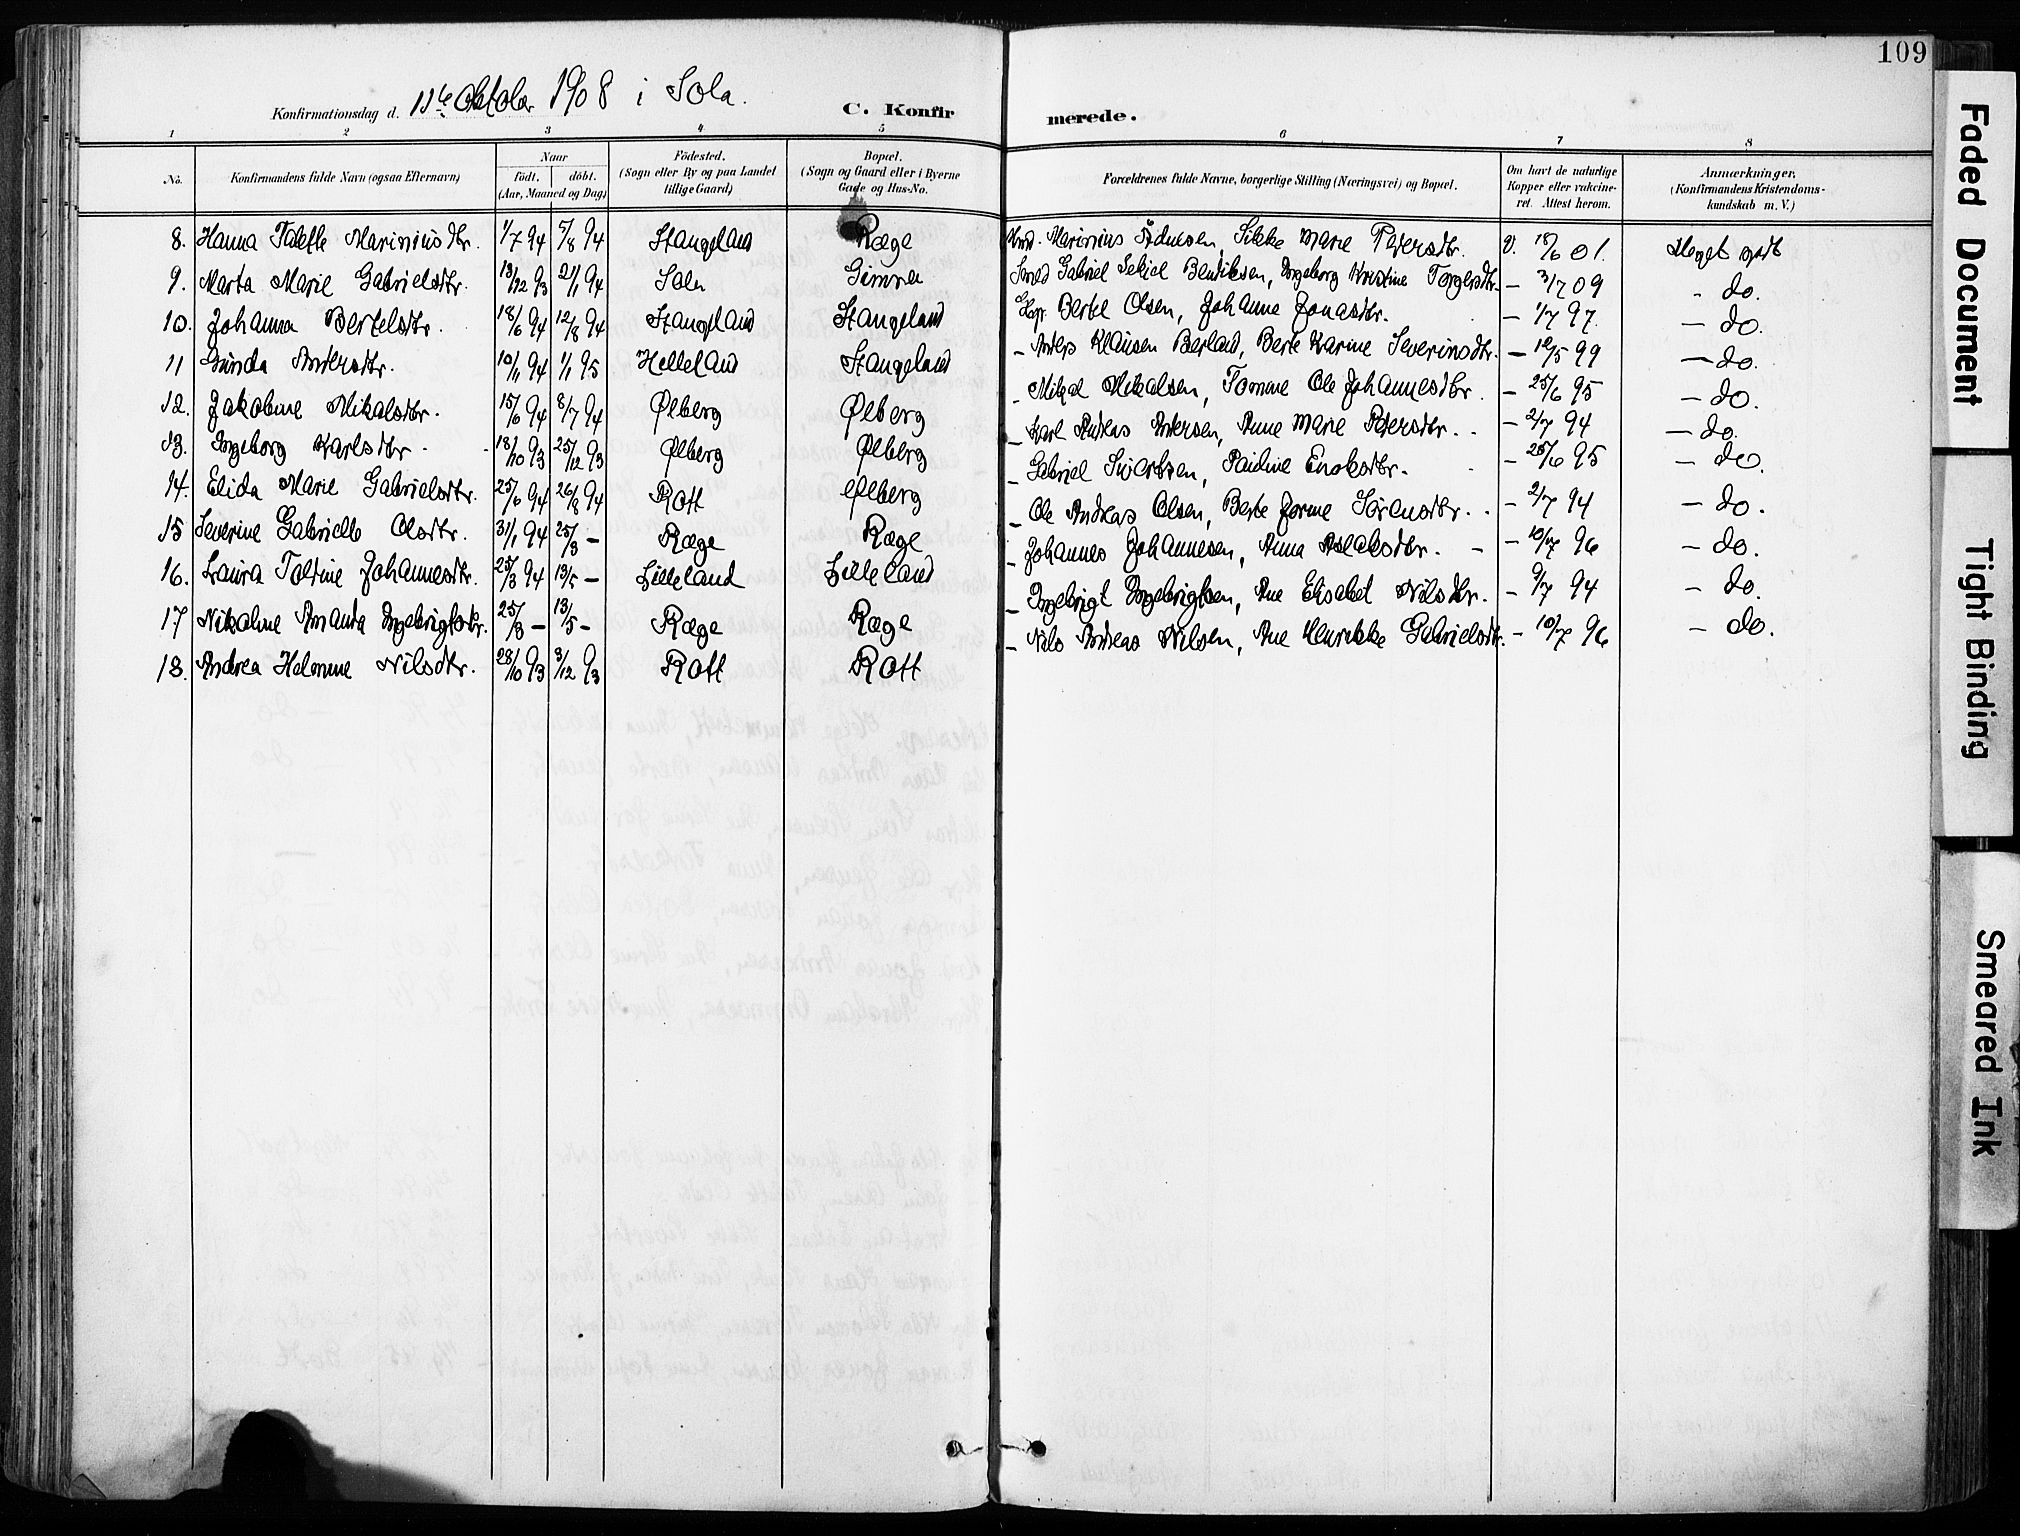 109
Konfirmationsdag d. 11te Oktober 1908 i Sola. C. Konfirmerede.
1 2 3 4 5 6 7 8
No. Konfirmandens fulde Navn (ogsaa Efternavn) Naar födt. döbt. (Aar, Maaned og Dag) Födested. (Sogn eller By og paa Landet tillige Gaard) Bopæl. (Sogn og Gaard eller i Byerne Gade og Hus-No. Forældrenes fulde Navne, borgerlige Stilling (Næringsvei) og Bopæl. Om havt de naturlige Kopper eller vakcineret. Attest herom. Anmærkninger. (Konfirmandens Kristendomskundskab m. V.)
8. Hanna Tolette Mariniusdtr. 1/7 94 5/8 94 Stangeland Ræge Marinius Marie Pedersdtr. V. 18/6 01. Meget godt
9. Marta Marie Gabrielsdtr. 13/12 93 21/1 94 Sola Gimra Gabriel Bendiksen, Ingeborg Kristine Torgersdtr. – 3/7 09 - do.
10. Johanna Bertelsdtr. 18/6 94 12/8 94 Stangeland Stangeland Bertel Olsen, Johanne Jonasdtr. – 1/7 97. – do.
11 Gunda Andersdtr. 10/11 94 1/1 95 Helleland Stangeland – Anders Klausen Berland, Berte Karine Severinsdtr. – 10/5 99 – do.
12. Jakobine Mikalsdtr. 15/6 94 8/7 94 Ølberg Ølberg – Mikal Mikalsen, Tomine Ole Johannesdtr. – 25/6 95 – do.
13. Ingeborg Karlsdtr. 18/10 93 25/12 93 Ølberg Ølberg – Karl Andreas Andersen, Anne Marie Pedersdtr. – 2/7 94 – do.
14. Elida Marie Gabrielsdtr. 25/6 94 26/8 94 Rott Ølberg – Gabriel Sivertsen, Pauline Enoksdtr. – 25/6 95 – do.
15 Severine Gabrielle Olsdtr. 31/1 94 25/3 – Ræge Ræge – Ole Andreas Olsen, Berte Jorine Sörensdtr. – 2/7 94 – do.
16. Laura Toldine Johannesdtr. 25/3 94 13/5 – Lilleland Lilleland – Johannes Johannesen, Anna Aslaksdtr. – 10/7 96 – do.
17 Nikoline Amanda Ingebrigtsdtr. 25/3 – 13/5 – Ræge Ræge – Ingebrigt Ingebrigtsen, Ane Elisabet Nilsdtr. – 9/7 94 – do.
18. Andrea Helmine Nilsdtr. 28/10 93 3/12 93 Rott Rott – Nils Andreas Nilsen, Ane Henrikke Gabrielsdtr. – 10/7 96 – do.
Faded Document
Tight Binding
Smeared Ink